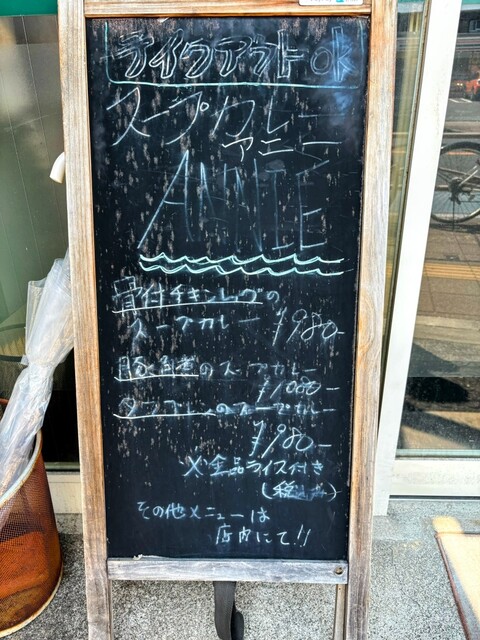 テイクアウトok
スープカレー
アニー
ANNIE
骨付チキンレッグの
スープカレー ¥980-
豚角煮のスープカレー
¥1080-
のスープカレー
¥980-
※全品ライス付き
(税込み)
その他メニューは
店内にて!!